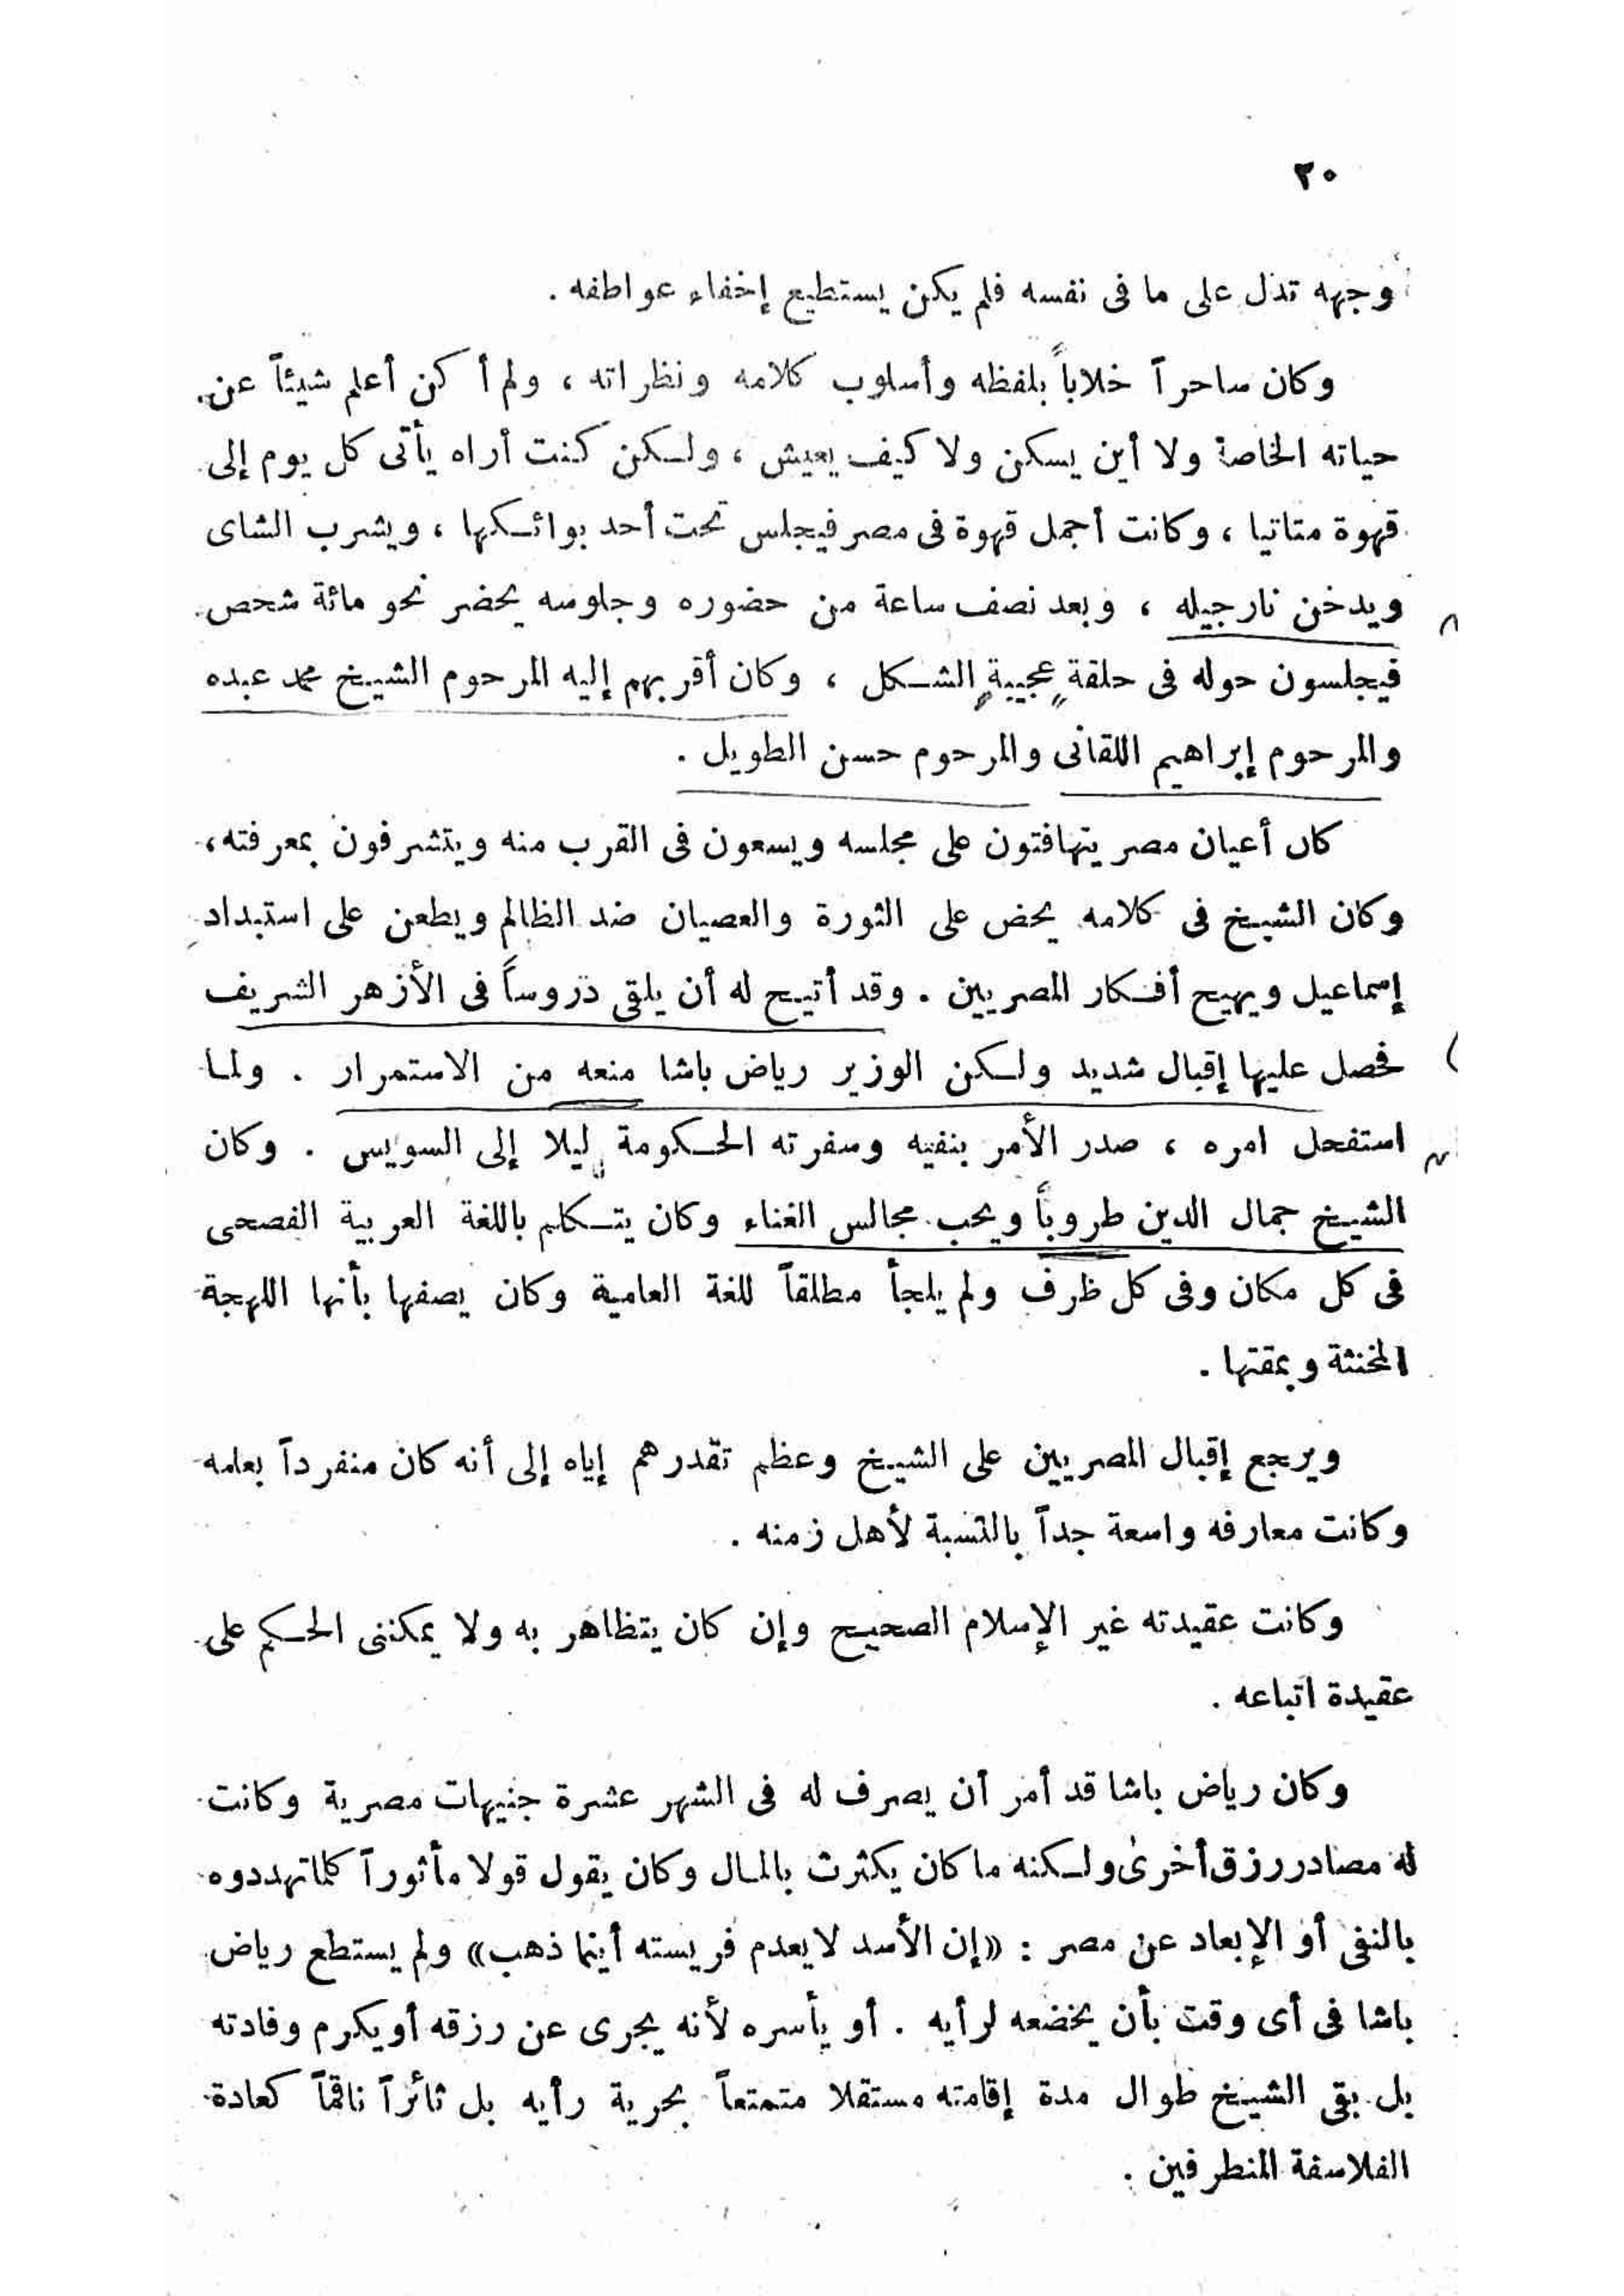 ٢٠
وجهه تدل على ما فى نفسه فلم يكن يستطيع إخفاء عواطفه .
وكان ساحراً خلاباً بلفظه وأسلوب كلامه ونظراته ، ولم أكن أعلم شيئاً عن
حياته الخاصة ولا أين يسكن ولا كيف يعيش ، ولكن كنت أراه يأتى كل يوم إلى
قهوة متاتيا ، وكانت أجمل قهوة فى مصر فيجلس تحت أحد بوائكها ، ويشرب الشاى
ويدخن نارجيله ، وبعد نصف ساعة من حضوره وجلوسه يحضر نحو مائة شخص
فيجلسون حوله فى حلقةٍ عجيبةٍ الشكل ، وكان أقربهم إليه المرحوم الشيخ محمد عبده
والمرحوم إبراهيم اللقانى والمرحوم حسن الطويل .
كان أعيان مصر يتهافتون على مجلسه ويسعون فى القرب منه ويتشرفون بمعرفته،
وكان الشيخ فى كلامه يحض على الثورة والعصيان ضد الظالم ويطعن على استبداد
إسماعيل ويهيج أفكار المصريين . وقد أتيح له أن يلقى دروساً فى الأزهر الشريف
فحصل عليها إقبال شديد ولكن الوزير رياض باشا منعه من الاستمرار . ولما
استفحل امره ، صدر الأمر بنفيه وسفرته الحكومة ليلا إلى السويس . وكان
الشيخ جمال الدين طروباً ويحب مجالس الغناء وكان يتكلم باللغة العربية الفصحى
فى كل مكان وفى كل ظرف ولم يلجأ مطلقاً للغة العامية وكان يصفها بأنها اللهجة
المخنثة ويمقتها .
ويرجع إقبال المصريين على الشيخ وعظم تقدرهم إياه إلى أنه كان منفرداً بعلمه
وكانت معارفه واسعة جداً بالنسبة لأهل زمنه .
وكانت عقيدته غير الإسلام الصحيح وإن كان يتظاهر به ولا يمكننى الحكم على
عقيدة اتباعه .
وكان رياض باشا قد أمر أن يصرف له فى الشهر عشرة جنيهات مصرية وكانت
له مصادر رزق أخرى ولكنه ما كان يكثرث بالمال وكان يقول قولا مأثوراً كلما تهددوه
بالنفى أو الإبعاد عن مصر : «إن الأسد لا يعدم فريسته أينما ذهب» ولم يستطع رياض
باشا فى أى وقت بأن يخضعه لرأيه . أو يأسره لأنه يجرى عن رزقه أو يكرم وفادته
بل بقى الشيخ طوال مدة إقامته مستقلا متمتعاً بحرية رأيه بل ثائراً ناقماً كعادة
الفلاسفة المتطرفين .